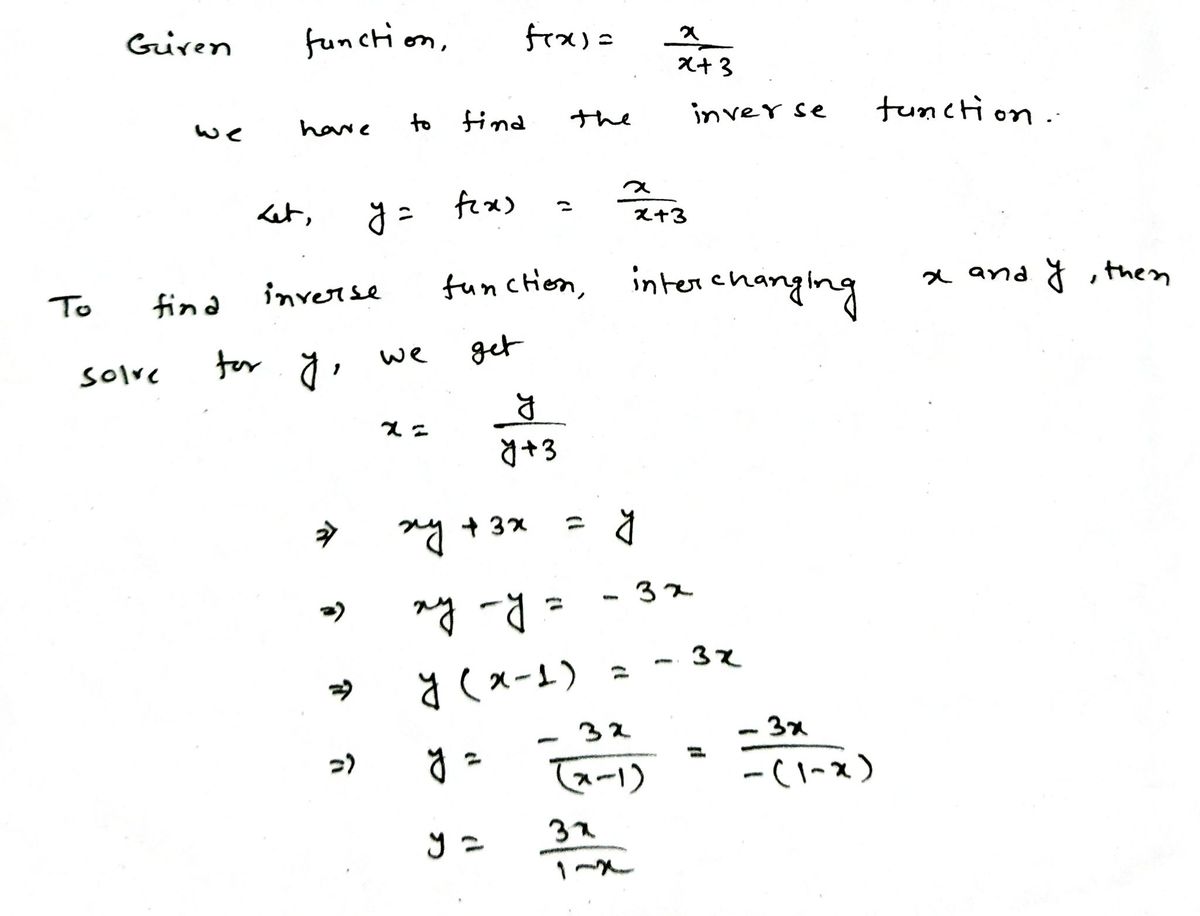 Given function, f(x) = x/(x+3)
we have to find the inverse function.
Let, y = f(x) = x/(x+3)
To find inverse function, interchanging x and y, then
solve for y, we get
x = y/(y+3)
⇒ xy + 3x = y
⇒ xy - y = - 3x
⇒ y (x-1) = - 3x
⇒ y = - 3x/(x-1) = - 3x/-(1-x)
y = 3x/(1-x)